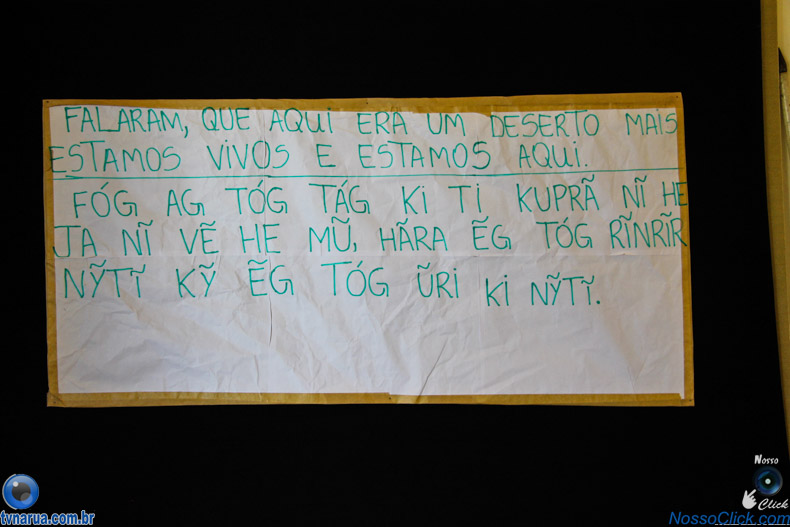 FALARAM, QUE AQUI ERA UM DESERTO MAIS
ESTAMOS VIVOS E ESTAMOS AQUI.
FÓG AG TÓG TÁG KI TI KUPRÃ NĨ HE
JA NĨ VẼ HE MŨ, HÃRA ẼG TÓG RĨNRĨR
NỸTĨ KỸ ẼG TÓG ŨRI KI NỸTĨ.
tvnarua.com.br
Nosso
Click
NossoClick.com